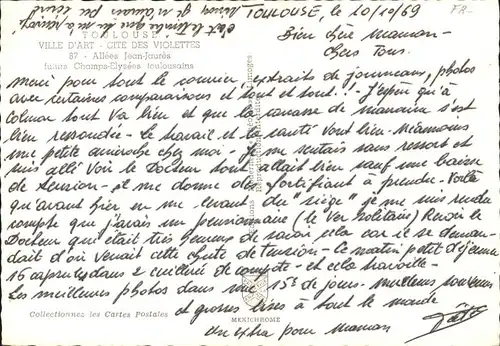 TOULOUSE, le 20/10/69
TOULOUSE
VILLE D'ART - CITE DES VIOLETTES
87 - Allées Jean-Jaurès
futurs Champs-Elysées toulousains
Bien chère Maman -
Chers Tous.
Merci pour tout le courrier, extraits de journaux, photos
avec certaines comparaisons et tout et tout! - J'espère qu'à
Colmar tout va bien et que la de s'est
bien ressoudée - le travail et la santé vont bien - Néanmoins
une petite anicroche chez moi - Je me sentais sans ressort et
suis allé voir le Docteur tout allait bien sauf une baisse
de tension - et me donne des fortifiant à prendre - Voilà
qu'avant hier en me levant du "siège" je me suis rendu
compte que j'avais un pensionnaire (le Ver solitaire) Revoir le
Docteur qui était très heureux de savoir cela car il se deman-
dait d'où venait cette chute de tension - Ce matin petit déjeuner
16 capsules dans 2 cuillère de compote - et cela travaille -
Les meilleures photos dans une 15e de jours - Meilleurs souvenirs
et grosses bises à tout le monde
un extra pour maman
Collectionnez les Cartes Postales
MEXICHROME